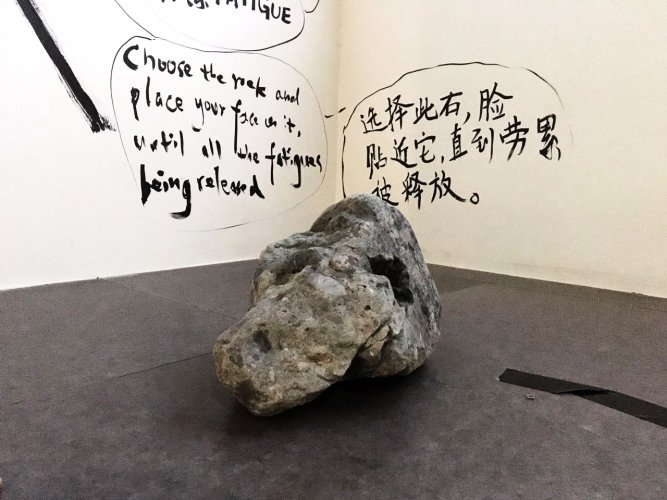 FATIGUE
Choose the rock and
place your face on it,
until all the fatigues
being released
选择此右,脸
贴近它,直到劳累
被释放。